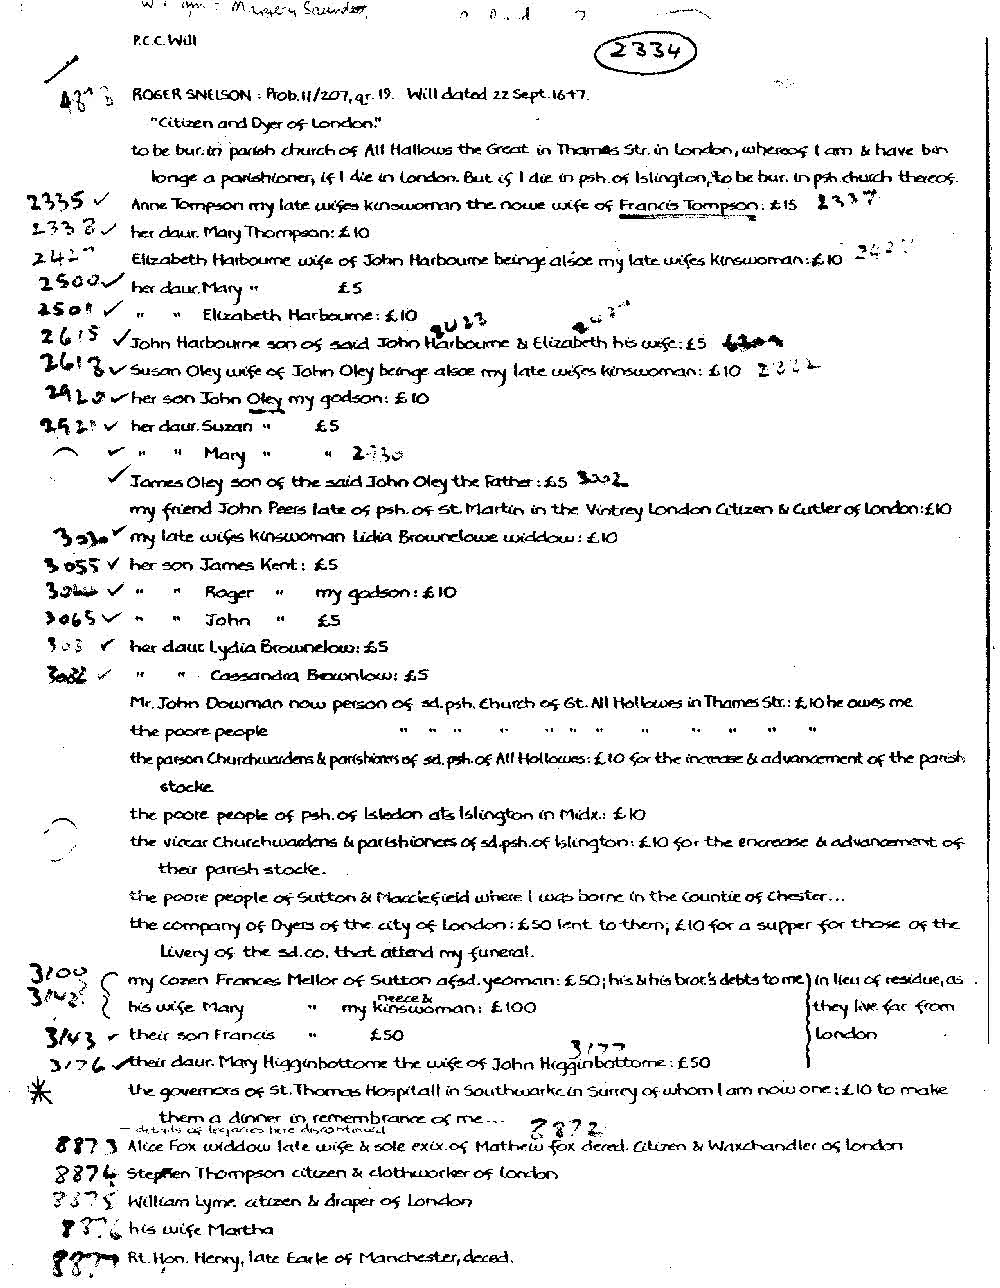 Margery Saunders
P.C.C. Will
2334
ROGER SNELSON: Prob.11/207, qr.19. Will dated 22 Sept. 1647.
"Citizen and Dyer of London."
to be bur. in parish church of All Hallows the Great in Thames Str. in London, whereof I am & have bin
longe a parishioner, if I die in London. But if I die in psh. of Islington, to be bur. in psh. church thereof.
2335 ✓ Anne Tompson my late wifes kinswoman the nowe wife of Francis Tompson: £15 2337
2338 ✓ her daur. Mary Thompson: £10
Elizabeth Harbourne wife of John Harbourne beinge alsoe my late wifes kinswoman: £10
2500 ✓ her daur. Mary " £5
2501 ✓ " " Elizabeth Harbourne: £10
2615 ✓ John Harbourne son of said John Harbourne & Elizabeth his wife: £5
2618 ✓ Susan Oley wife of John Oley beinge alsoe my late wifes kinswoman: £10
2920 ✓ her son John Oley my godson: £10
✓ her daur. Suzan " £5
✓ " " Mary " " 2930
✓ James Oley son of the said John Oley the Father: £5 3002
my friend John Peers late of psh. of St. Martin in the Vintrey London Citizen & Cutler of London: £10
✓ my late wifes kinswoman Lidia Brownelowe widdow: £10
3055 ✓ her son James Kent: £5
✓ " " Roger " my godson: £10
3065 ✓ " " John " £5
✓ her daur. Lydia Brownelow: £5
✓ " " Cassandra Brownlow: £5
Mr. John Dowman now person of sd. psh. Church of Gt. All Hollowes in Thames Str.: £10 he owes me
the poore people " " " " " " " " " " " "
the parson Churchwardens & parishioners of sd. psh. of All Hollowes: £10 for the increase & advancement of the parish
stocke
the poore people of psh. of Isledon als Islington in Midx.: £10
the viccar Churchwardens & parishioners of sd. psh. of Islington: £10 for the encrease & advancement of
their parish stocke.
the poore people of Sutton & Macclefield where I was borne in the Countie of Chester...
the company of Dyers of the city of London: £50 lent to them; £10 for a supper for those of the
Livery of the sd. co. that attend my funeral.
3100 my Cozen Frances Mellor of Sutton afsd. yeoman: £50; his & his brot's debts to me in lieu of residue, as
3142 his wife Mary " my neece & kinswoman: £100 they live far from
3143 ✓ their son Francis " £50 London
3176 ✓ their daur. Mary Higginbottome the wife of John Higginbottome: £50 3177
* the governors of St. Thomas Hospitall in Southwarke in Surrey of whom I am now one: £10 to make
them a dinner in remembrance of me...
– details of legacies here discontinued 8872
8873 Alice Fox widdow late wife & sole exix. of Mathew Fox decred. Citizen & Waxchandler of London
8874 Stephen Thompson citizen & clothworker of London
8875 William Lyme. citizen & draper of London
8876 his wife Martha
8877 Rt. Hon. Henry, late Earle of Manchester, deced.